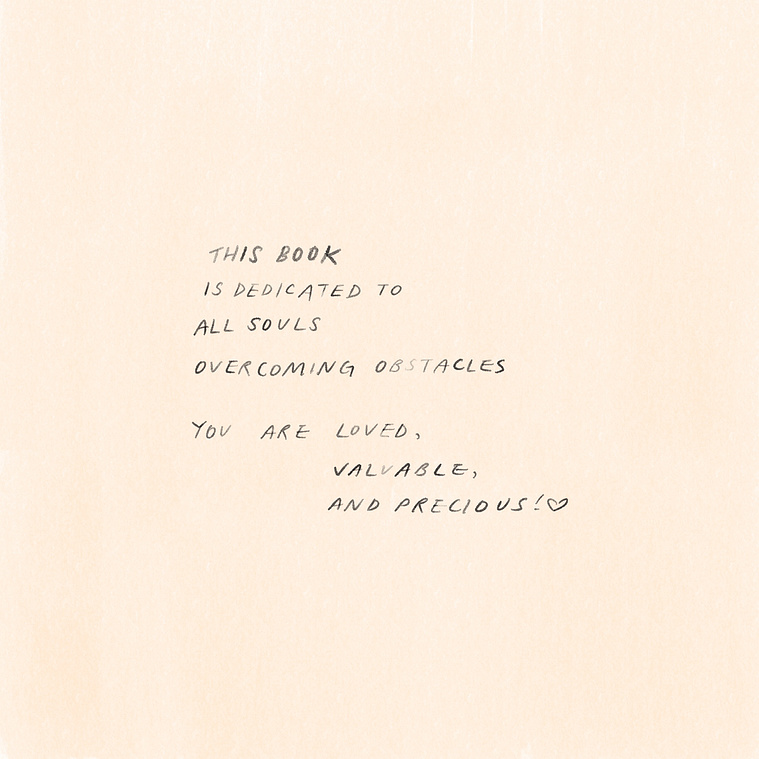 THIS BOOK
IS DEDICATED TO
ALL SOULS
OVERCOMING OBSTACLES
YOU ARE LOVED,
VALUABLE,
AND PRECIOUS!♡